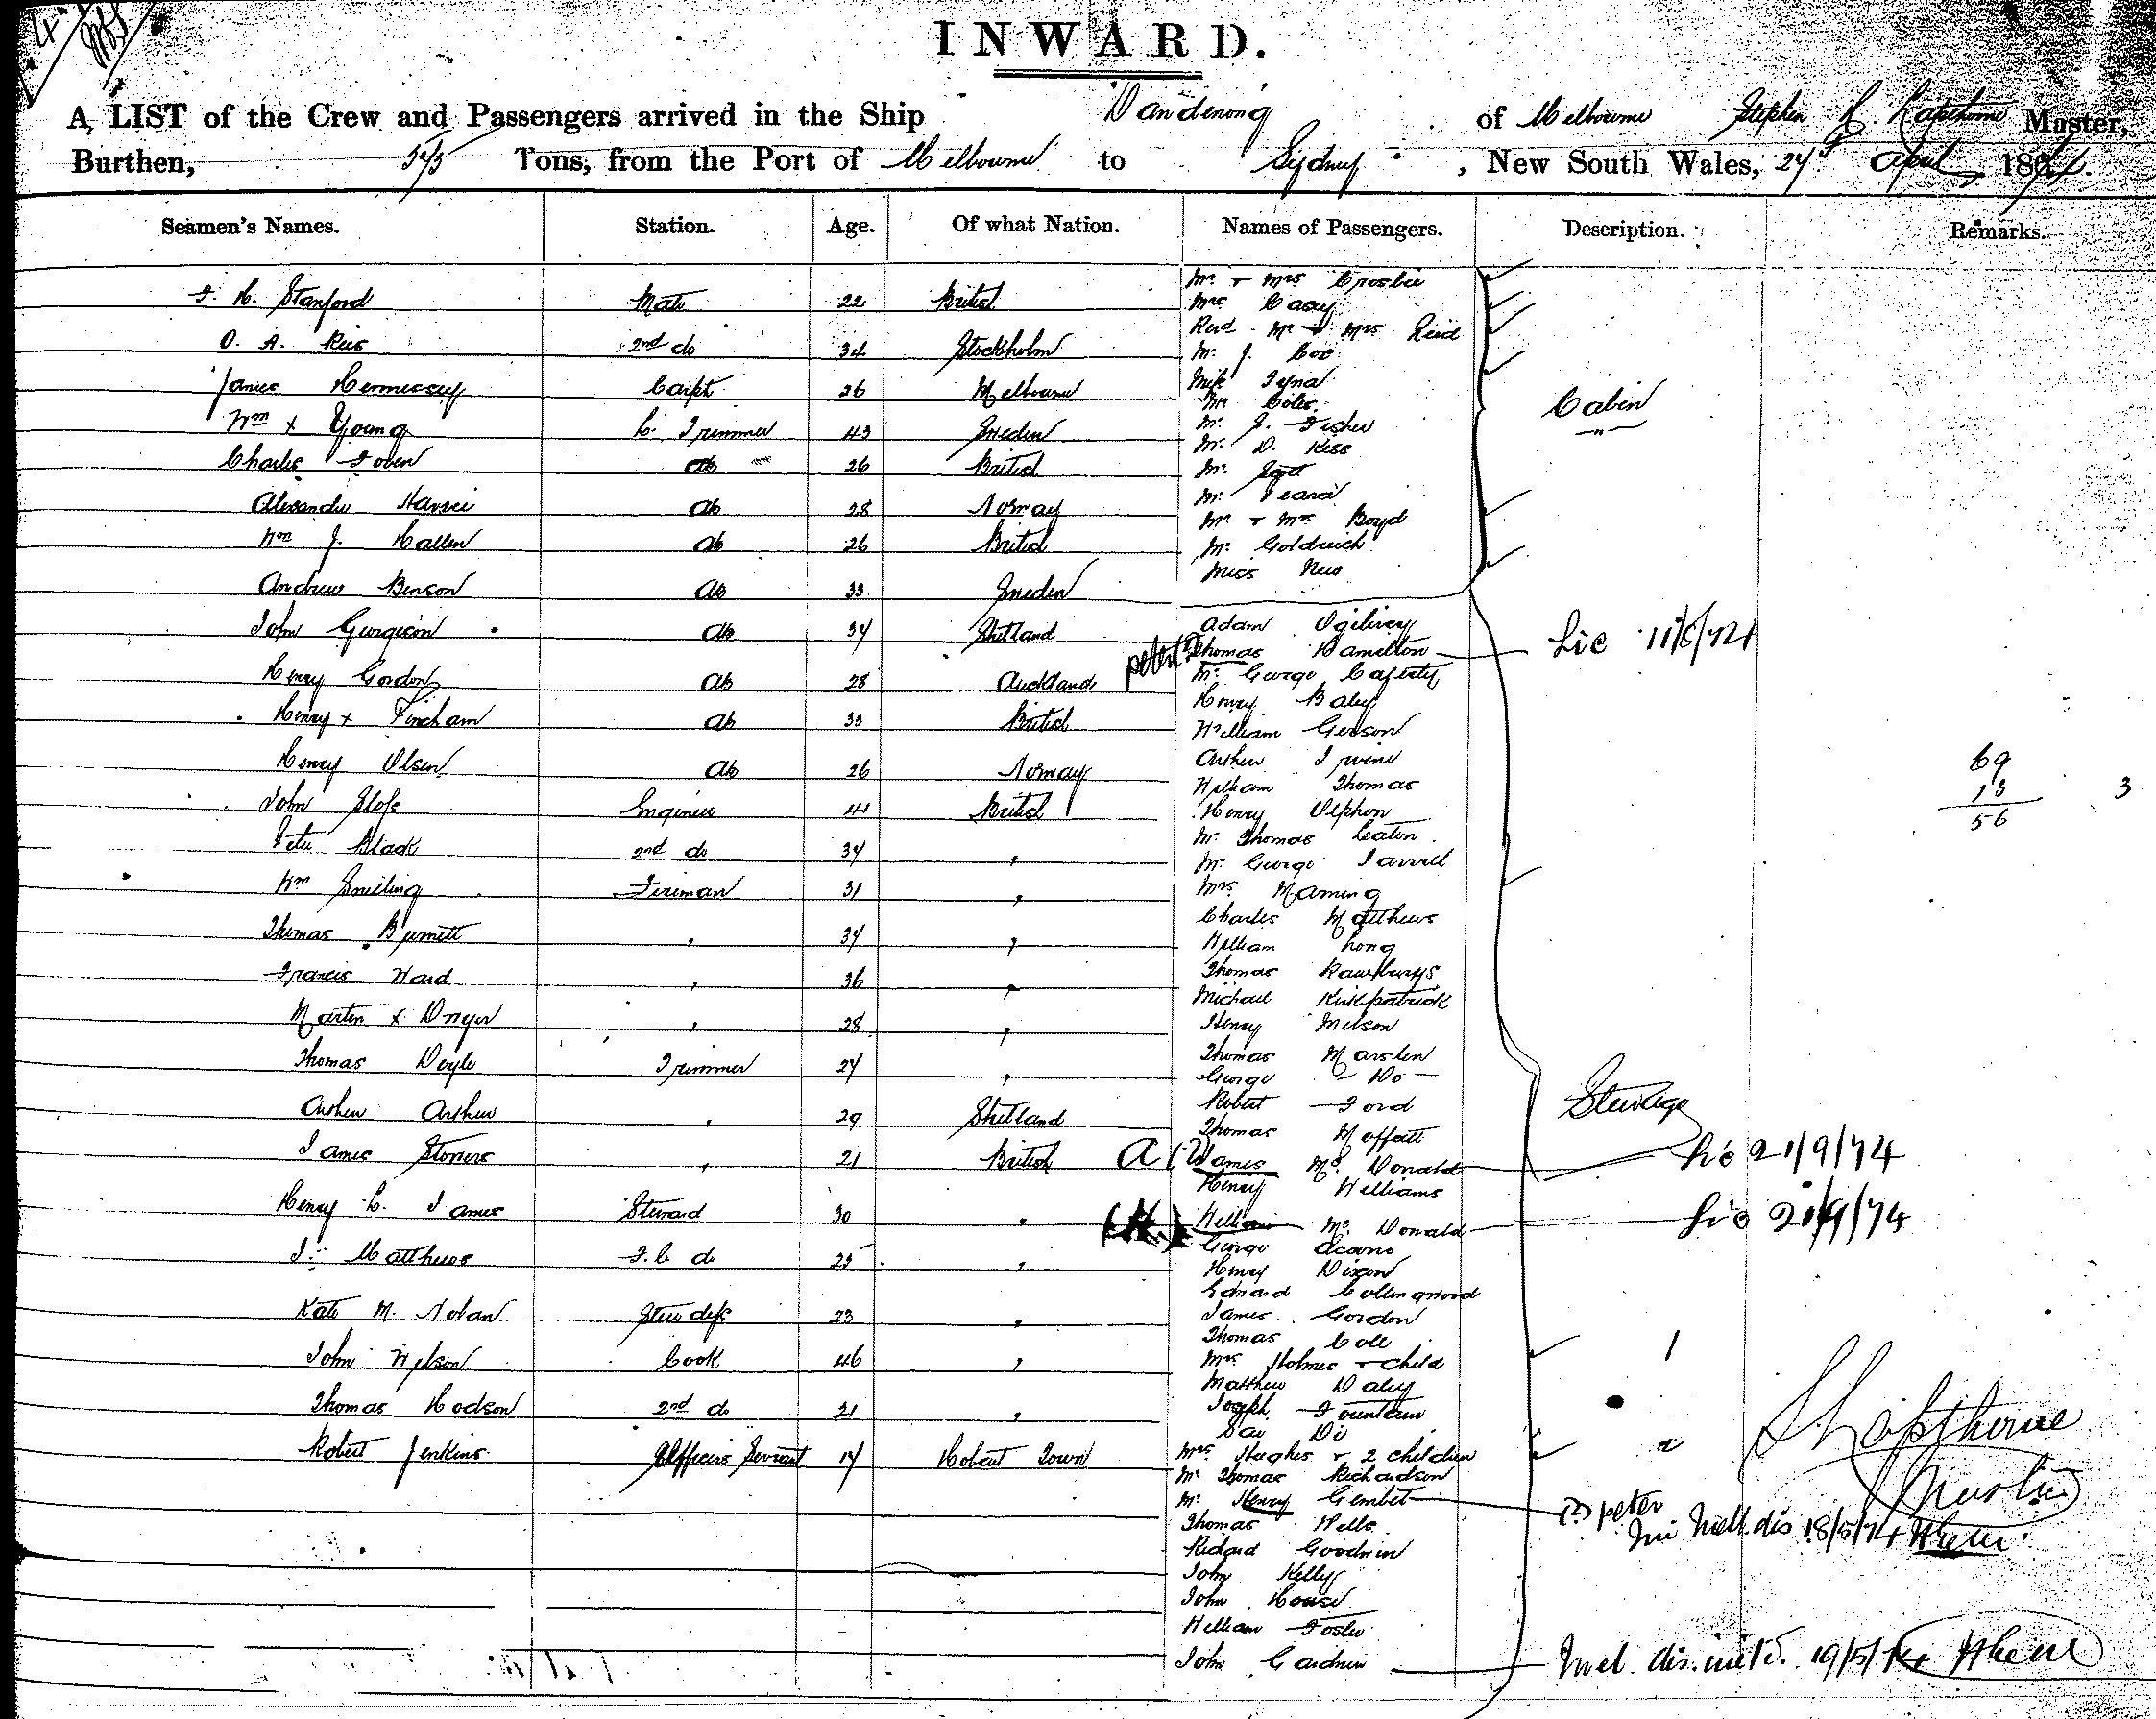 INWARD.
A LIST of the Crew and Passengers arrived in the Ship Dandenong of Melbourne Stephen Lapthorne Master,
Burthen, Tons, from the Port of Melbourne to Sydney, New South Wales, April 187
Seamen's Names. Station. Age. Of what Nation. Names of Passengers. Description. Remarks.
Mr & Mrs Crosbie
Stanford Mate 22 British
Mrs Casey
Revd Mr & Mrs Reid
O. A. Reis 2nd do 34 Stockholm
Mr J. Cox
James Hennessey Carpt 26 Melbourne
Mr Coles
Cabin
Wm x Young C. Trimmer 43 Sweden
Mr J. Fisher
Mr D. Kiss
Charles ab 26 British
Mr Scott
Alexander ab 28 Norway
Mr & Mrs Boyd
Wm J. Hallen ab 26 British
Mr Goldreich
Miss New
Andrew Benson ab 33 Sweden
Adam Ogilivey
John Gurgison ab 34 Shetland
Thomas Hamilton
Henry Gordon ab 28 Auckland
Mr George Caferty
Henry Baley
Henry x Fincham ab 33 British
William Gerson
Henry Olsen ab 26 Norway
Arthur Irvine
69
William Thomas
13 3
John Engineer 41 British
Henry
56
Mr Thomas Leaton
Peter Black 2nd do 34 "
Mr George Farrell
Wm Snelling Fireman 31 "
Mrs Maning
Charles Matthews
Thomas Burnett " 34 "
William Long
Thomas
Francis Ward " 36 "
Michael Kirkpatrick
Martin x Dwyer " 28 "
Henry Melson
Thomas Marslen
Thomas Doyle Trimmer 24 "
George Do
Robert Ford
Steerage
Arthur Arthur " 29 Shetland
Thomas Moffatt
James " 21 British
James McDonald Lic 21/9/74
Henry Williams
Henry C. James Steward 30 "
William McDonald Lic 21/9/74
George
Matthews F.C. do 25 "
Henry Dixon
Edward Collingwood
Kate M. Nolan Stewdess 23 "
James Gordon
Thomas Cole
John Wilson Cook 46 "
Mrs Holmes & child 1
Matthew Daley
Thomas Hodson 2nd do 21 "
Joseph Fountain
Do
Robert Jenkins Officers Servant 14 Hobart Town
Mrs Hughes & 2 children
S Lapthorne
Mr Thomas Richardson
Master
Mr Henry Gembet
(?) peter
Thomas Wells
Richard Goodwin
John Kelly
John House
William Foster
John Gardner